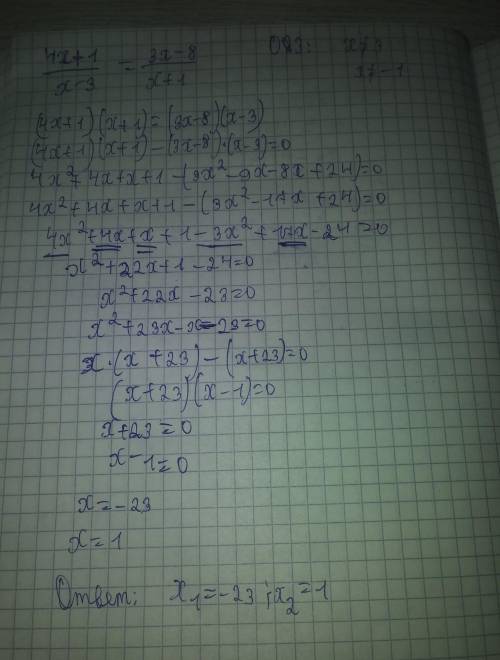 4x+1 / x-3 = 3x-8 / x+1 ОДЗ: x≠3
x≠-1
(4x+1)(x+1)=(3x-8)(x-3)
(4x+1)(x+1)-(3x-8)·(x-3)=0
4x²+4x+x+1-(3x²-9x-8x+24)=0
4x²+4x+x+1-(3x²-17x+24)=0
4x²+4x+x+1-3x²+17x-24=0
x²+22x+1-24=0
x²+22x-23=0
x²+23x-x-23=0
x·(x+23)-(x+23)=0
(x+23)(x-1)=0
x+23=0
x-1=0
x=-23
x=1
Ответ: x₁=-23; x₂=1